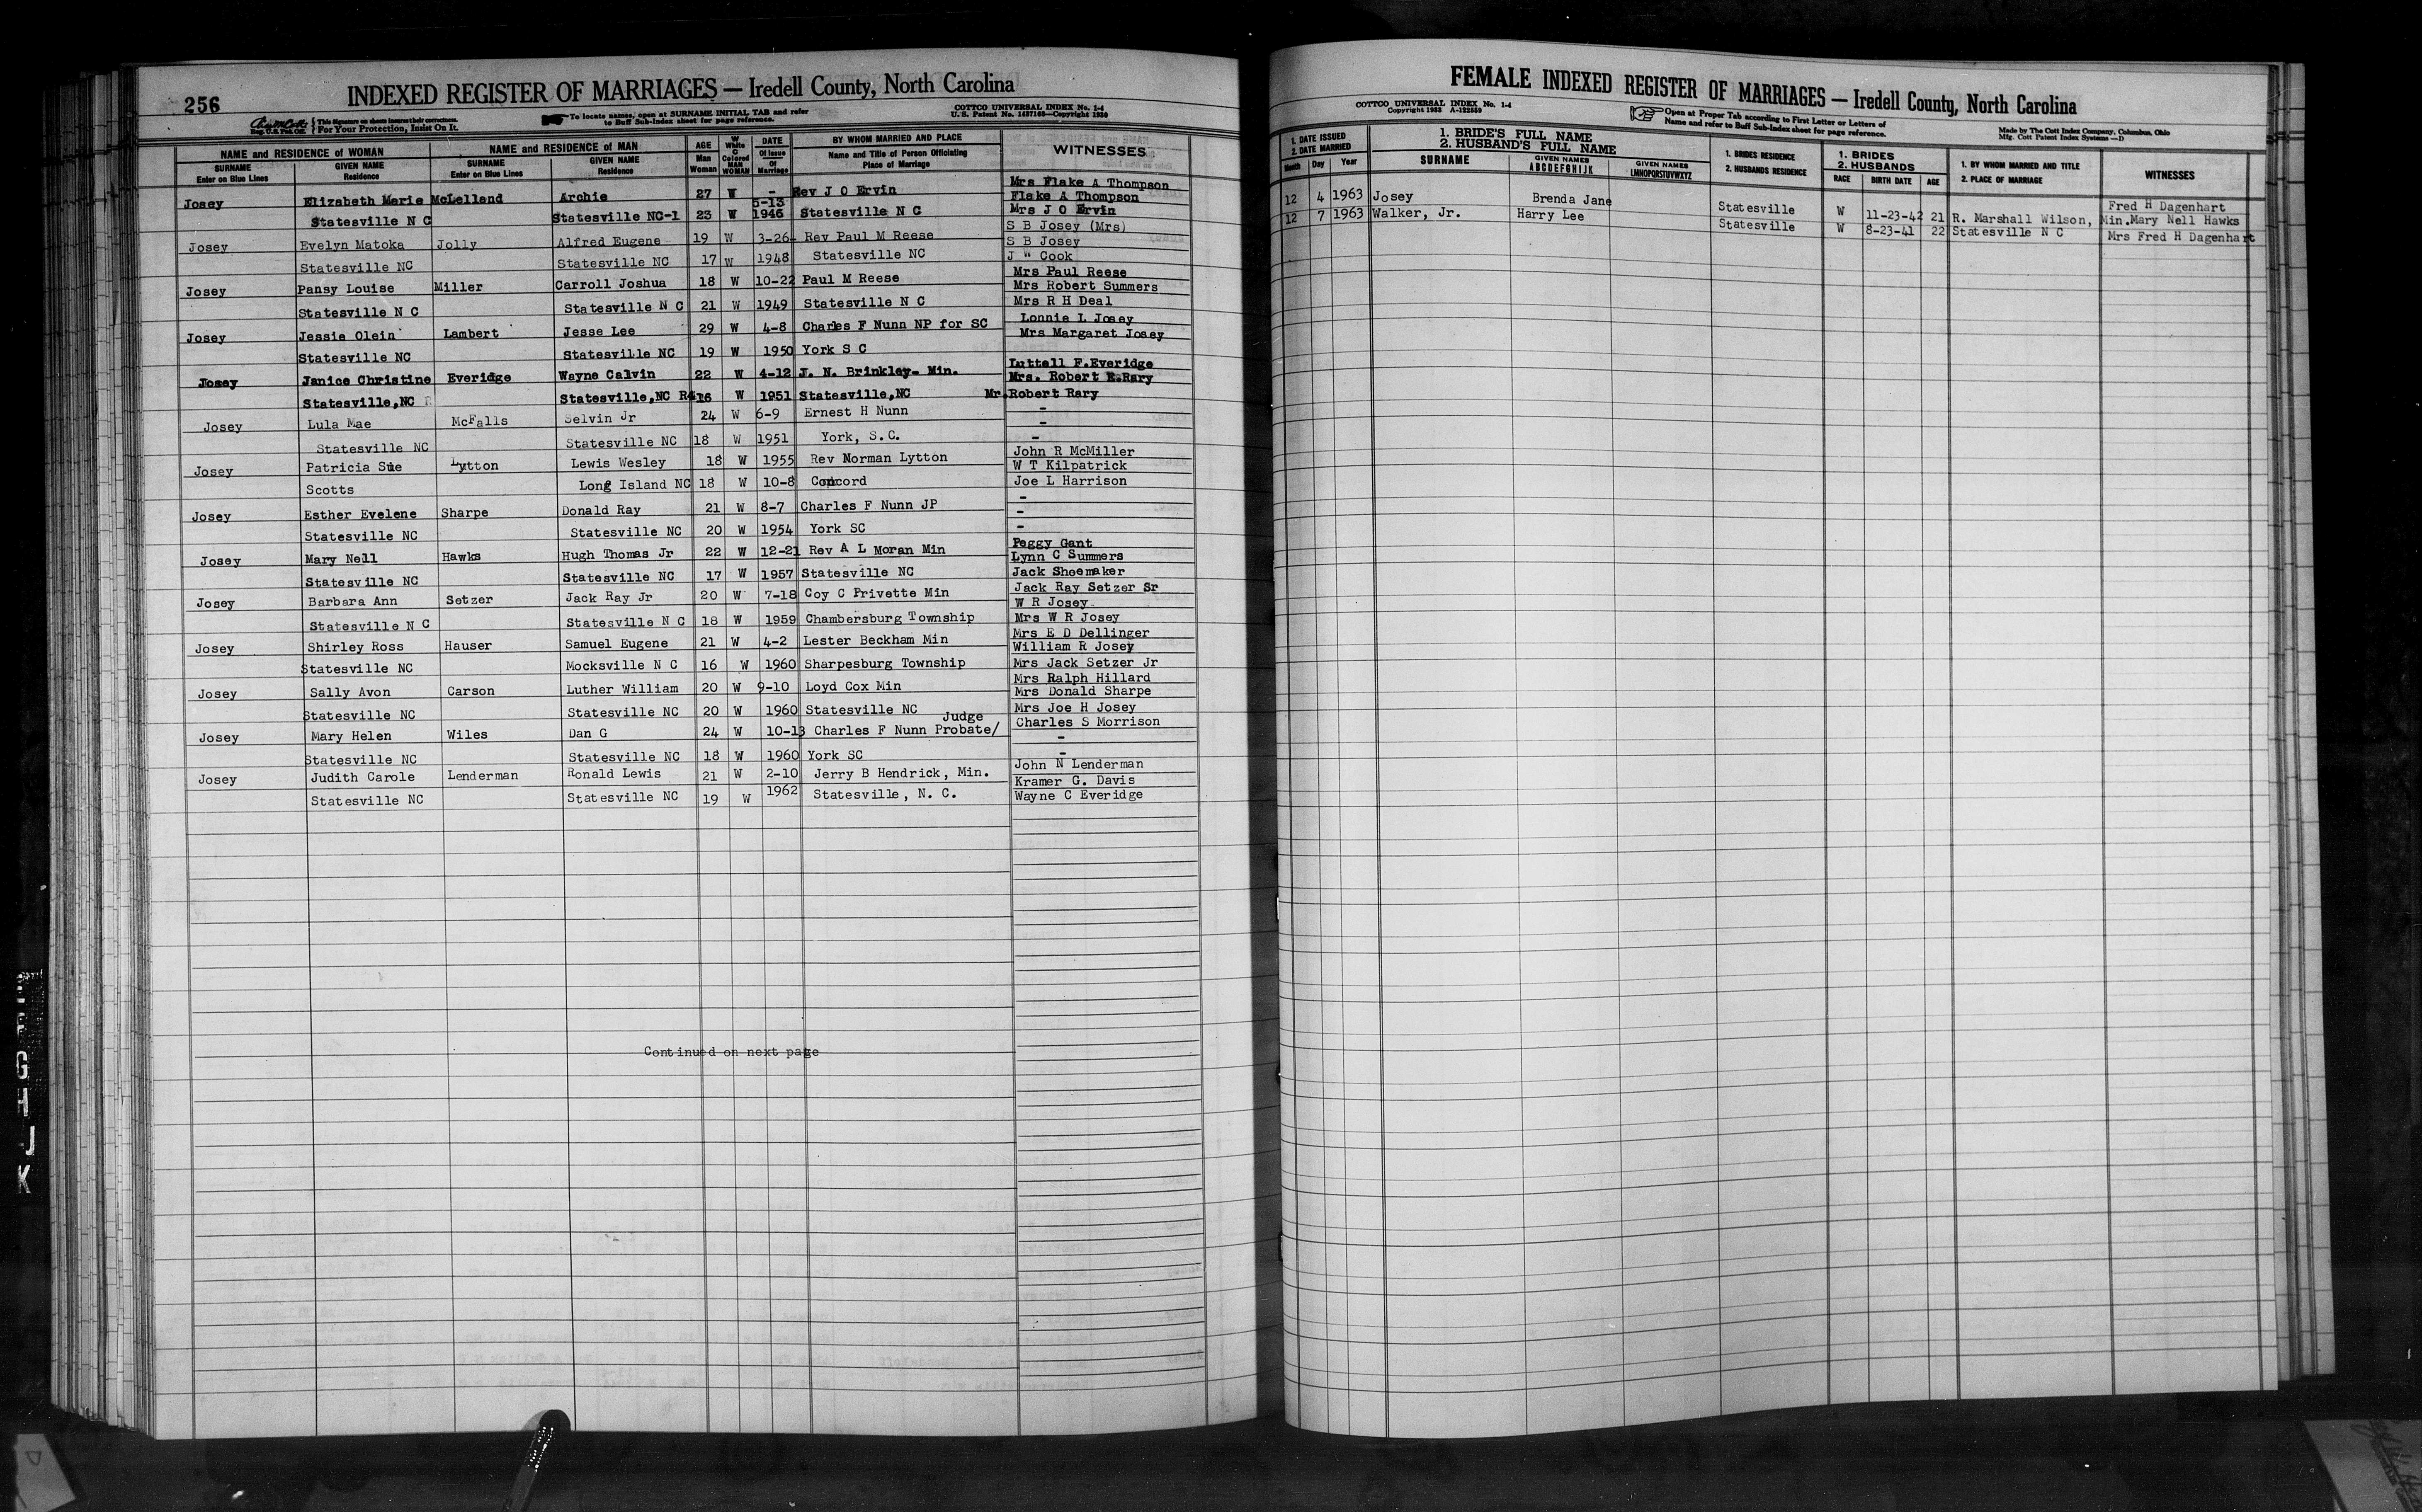 256
INDEXED REGISTER OF MARRIAGES — Iredell County, North Carolina
This Signature on sheets insures their correctness.
For Your Protection, Insist On It.
To locate names, open at SURNAME INITIAL TAB and refer
to Buff Sub-Index sheet for page reference.
COTTCO UNIVERSAL INDEX No. 1-4
NAME and RESIDENCE of WOMAN NAME and RESIDENCE of MAN AGE DATE BY WHOM MARRIED AND PLACE WITNESSES
SURNAME GIVEN NAME SURNAME GIVEN NAME Man White Of Issue Name and Title of Person Officiating
Enter on Blue Lines Residence Enter on Blue Lines Residence Woman Colored MAN WOMAN Of Marriage Place of Marriage
Josey Elizabeth Marie McLelland Archie 27 W - Rev J O Ervin Mrs Flake A Thompson
Flake A Thompson
Statesville N C Statesville NC-1 23 W 5-13 1946 Statesville N C Mrs J O Ervin
Josey Evelyn Matoka Jolly Alfred Eugene 19 W 3-26- Rev Paul M Reese S B Josey (Mrs)
S B Josey
Statesville NC Statesville NC 17 W 1948 Statesville NC J " Cook
Josey Pansy Louise Miller Carroll Joshua 18 W 10-22 Paul M Reese Mrs Paul Reese
Mrs Robert Summers
Statesville N C Statesville N C 21 W 1949 Statesville N C Mrs R H Deal
Josey Jessie Olein Lambert Jesse Lee 29 W 4-8 Charles F Nunn NP for SC Lonnie L Josey
Mrs Margaret Josey
Statesville NC Statesville NC 19 W 1950 York S C
Josey Janice Christine Everidge Wayne Calvin 22 W 4-12 J. N. Brinkley- Min. Luttell F.Everidge
Mrs. Robert E.Rary
Statesville,NC R Statesville,NC R4 16 W 1951 Statesville,NC Mr.Robert Rary
Josey Lula Mae McFalls Selvin Jr 24 W 6-9 Ernest H Nunn -
-
Statesville NC Statesville NC 18 W 1951 York, S.C. -
Josey Patricia Sue Lytton Lewis Wesley 18 W 1955 Rev Norman Lytton John R McMiller
W T Kilpatrick
Scotts Long Island NC 18 W 10-8 Concord Joe L Harrison
Josey Esther Evelene Sharpe Donald Ray 21 W 8-7 Charles F Nunn JP -
-
Statesville NC Statesville NC 20 W 1954 York SC -
Josey Mary Nell Hawks Hugh Thomas Jr 22 W 12-21 Rev A L Moran Min Peggy Gant
Lynn C Summers
Statesville NC Statesville NC 17 W 1957 Statesville NC Jack Shoemaker
Josey Barbara Ann Setzer Jack Ray Jr 20 W 7-18 Coy C Privette Min Jack Ray Setzer Sr
W R Josey
Statesville N C Statesville N C 18 W 1959 Chambersburg Township Mrs W R Josey
Josey Shirley Ross Hauser Samuel Eugene 21 W 4-2 Lester Beckham Min Mrs E D Dellinger
William R Josey
Statesville NC Mocksville N C 16 W 1960 Sharpesburg Township Mrs Jack Setzer Jr
Josey Sally Avon Carson Luther William 20 W 9-10 Loyd Cox Min Mrs Ralph Hillard
Mrs Donald Sharpe
Statesville NC Statesville NC 20 W 1960 Statesville NC Mrs Joe H Josey
Josey Mary Helen Wiles Dan G 24 W 10-13 Charles F Nunn Probate/ Judge Charles S Morrison
-
Statesville NC Statesville NC 18 W 1960 York SC -
Josey Judith Carole Lenderman Ronald Lewis 21 W 2-10 Jerry B Hendrick, Min. John N Lenderman
Kramer G. Davis
Statesville NC Statesville NC 19 W 1962 Statesville, N. C. Wayne C Everidge
Continued on next page
FEMALE INDEXED REGISTER OF MARRIAGES — Iredell County, North Carolina
COTTCO UNIVERSAL INDEX No. 1-4
Open at Proper Tab according to First Letter or Letters of
Name and refer to Buff Sub-Index sheet for page reference.
Made by The Cott Index Company, Columbus, Ohio
Mfg. Cott Patent Index Systems —D
1. DATE ISSUED 1. BRIDE'S FULL NAME 1. BRIDES RESIDENCE 1. BRIDES 1. BY WHOM MARRIED AND TITLE WITNESSES
2. DATE MARRIED 2. HUSBAND'S FULL NAME 2. HUSBANDS RESIDENCE 2. HUSBANDS 2. PLACE OF MARRIAGE
Month Day Year SURNAME GIVEN NAMES ABCDEFGHIJK GIVEN NAMES LMNOPQRSTUVWXYZ RACE BIRTH DATE AGE
12 4 1963 Josey Brenda Jane Statesville W 11-23-42 21 R. Marshall Wilson, Min. Fred H Dagenhart
Mary Nell Hawks
12 7 1963 Walker, Jr. Harry Lee Statesville W 8-23-41 22 Statesville N C Mrs Fred H Dagenhart
G
H
J
K